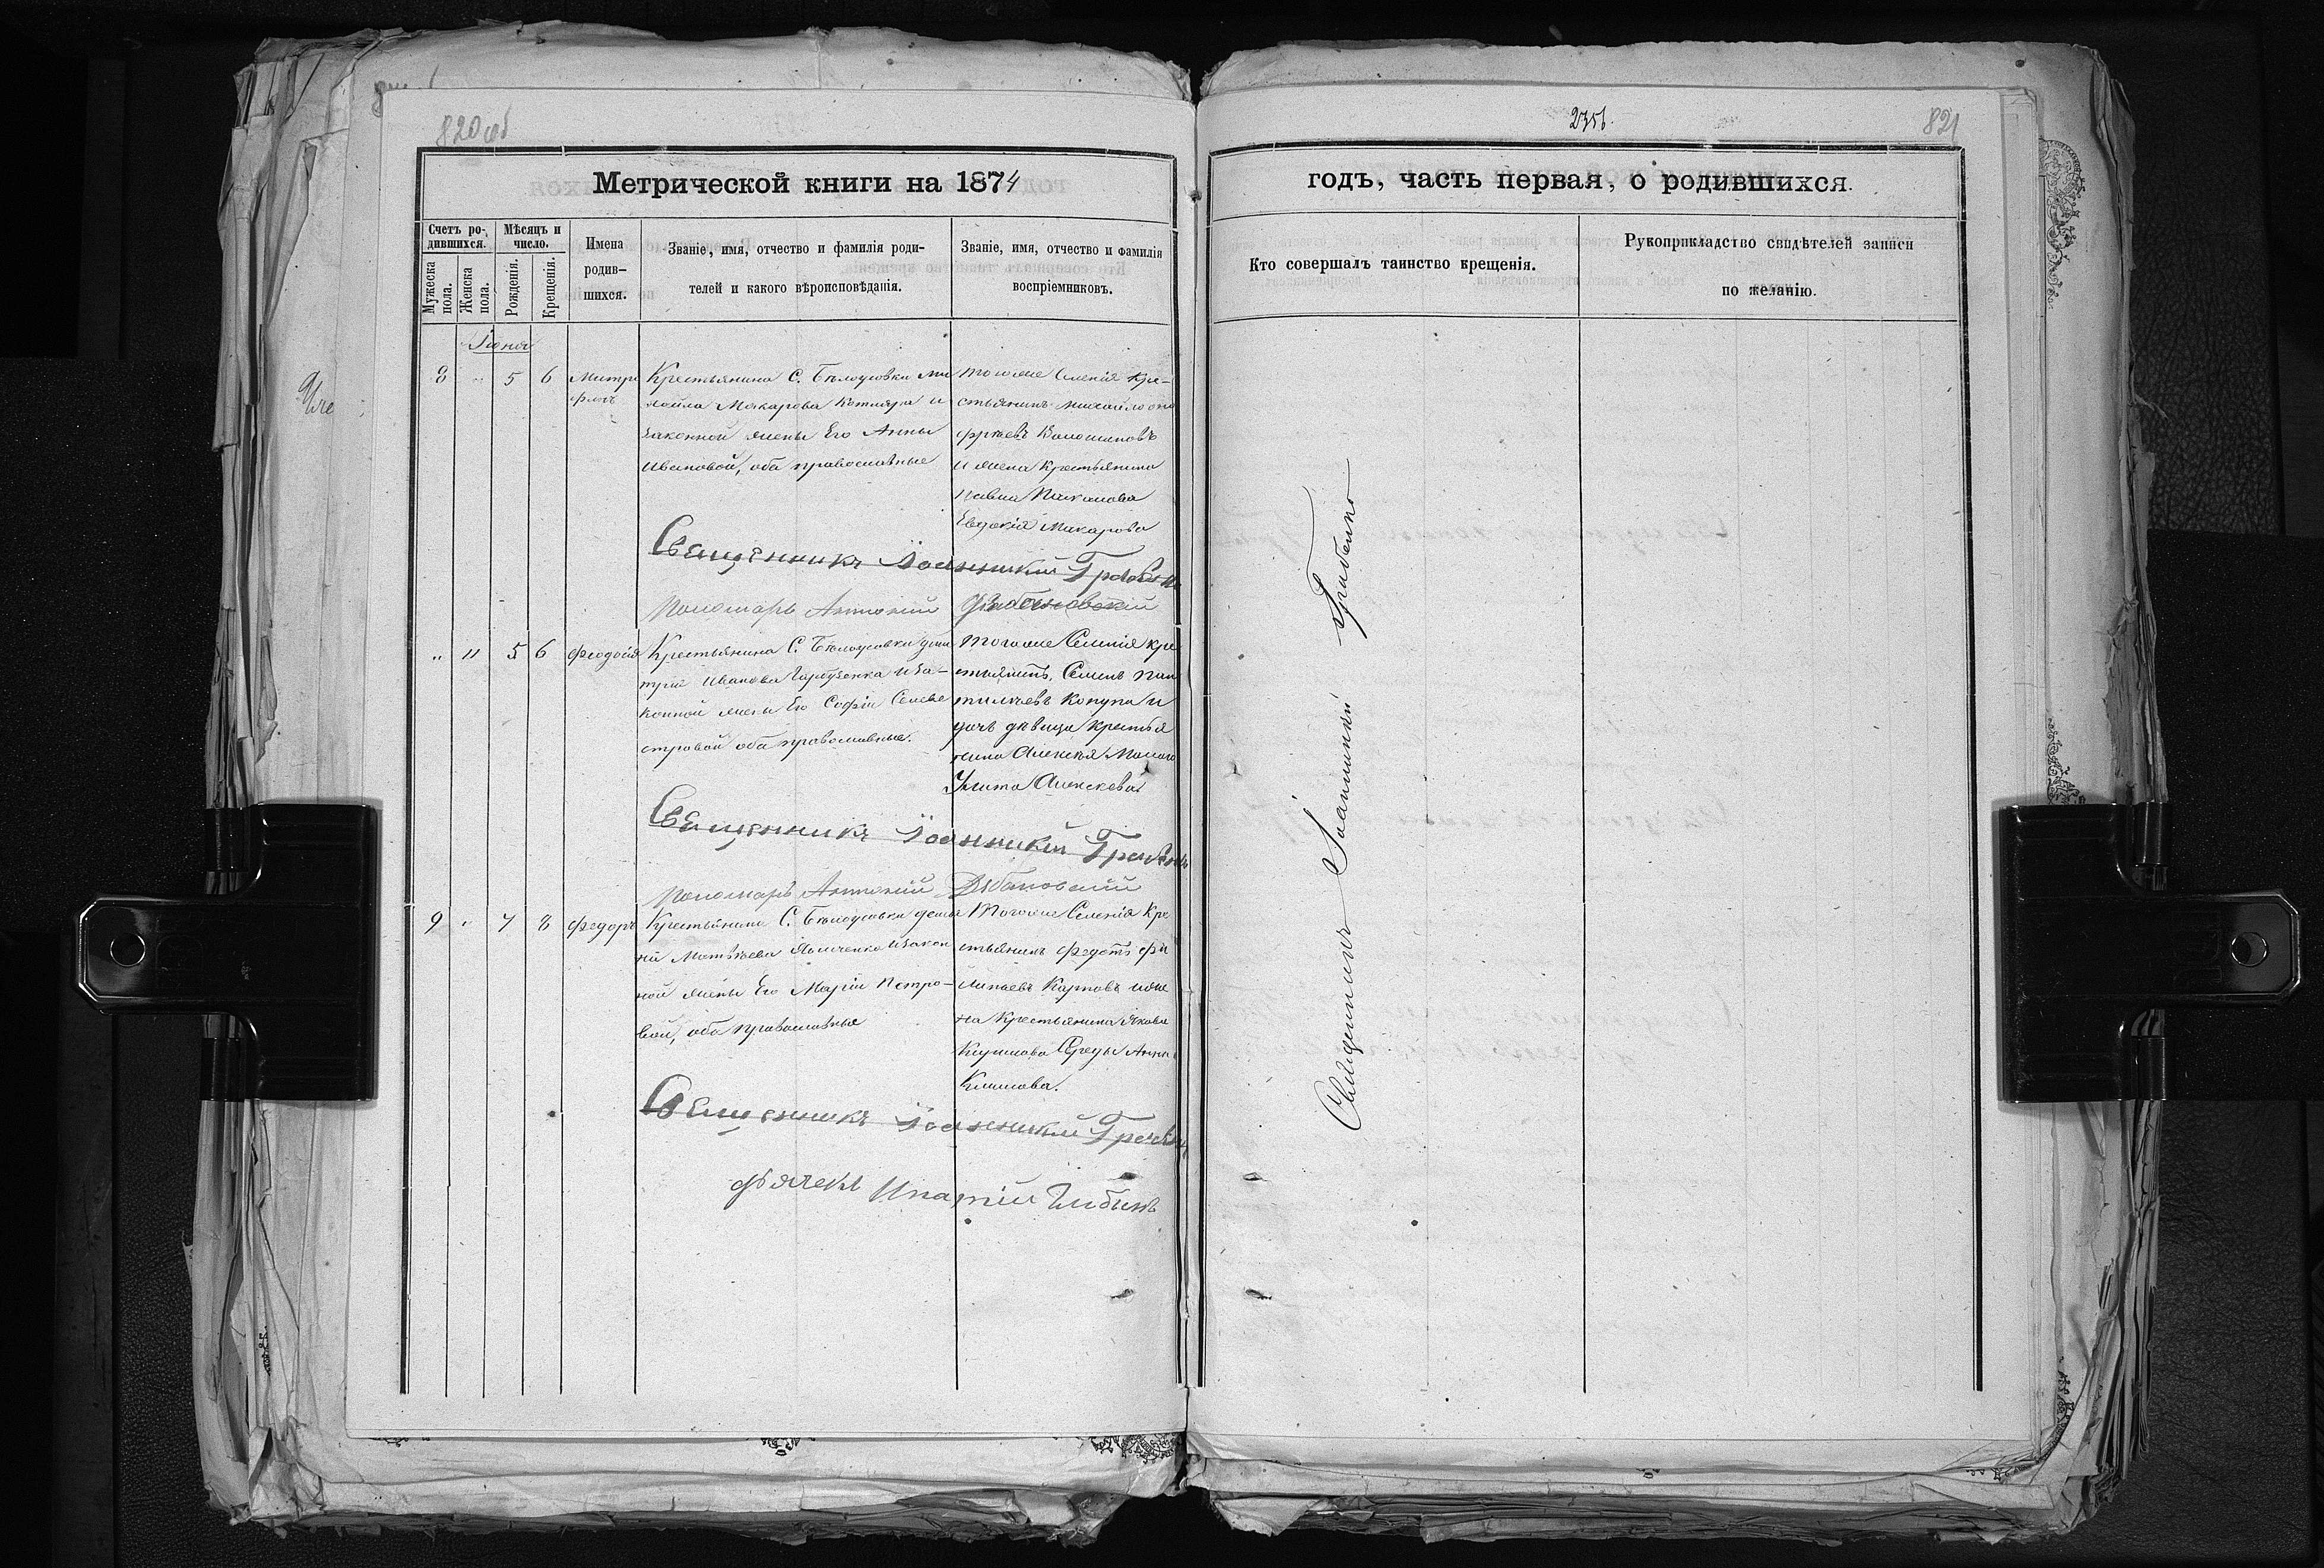 820 об
Метрической книги на 1874
Счетъ ро-
дившихся.
Мѣсяцъ и
число.
Мужеска
пола.
Женска
пола.
Рожденія.
Крещенія.
Имена
родив-
шихся.
Званіе, имя, отчество и фамилія роди-
телей и какого вѣроисповѣданія.
Званіе, имя, отчество и фамилія
воспріемниковъ.
Іюня
8 " 5 6
Митро
фанъ
Крестьянина С. Бѣлоусовки Ми
хаила Макарова Котляра и
законной жены Его Анны
Ивановой, оба православные
тогоже Селенія Кре-
стьянинъ Михаило Ону
фріевъ Волошиновъ
и жена Крестьянина
Павла
Евдокія Макарова
Священникъ Іоанникій
Пономарь Антоній
" 11 5 6
Феодосія
Крестьянина С. Бѣлоусовки Дми
трія Иванова и за-
конной жены Его Софіи Селиве
стровой оба православные.
тогоже Селенія кре
стьянинъ, Семенъ Пан
тилѣевъ и
дочь дѣвица крестья
нина Алексѣя
Улита Алексѣева
Священникъ Іоанникій
Пономарь Антоній
9 " 7 8
Федоръ
Крестьянина С. Бѣлоусовки
Матвѣева и закон
ной жены Его Маріи Петро-
вой, оба православные
Тогоже Селенія Кре
стьянинъ Федотъ Фи
липаевъ Карповъ и же
на Крестьянина Якова
Кирилова Середы Анна
Климова.
Священникъ Іоанникій
Дьячекъ Ипатій
2356.
821
годъ, часть первая, о родившихся.
Кто совершалъ таинство крещенія.
Рукоприкладство свидѣтелей записи
по желанію.
Священникъ Іоанникій Грабенко